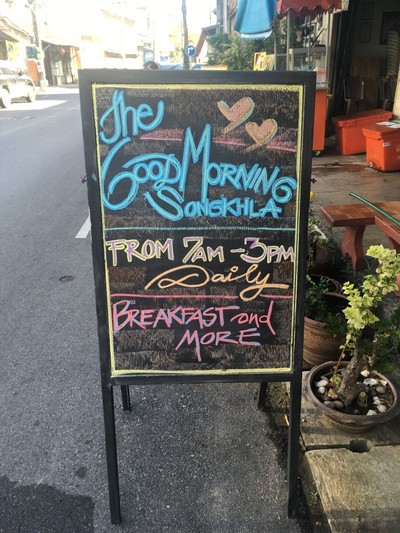 The
Good Morning
Songkhla
FROM 7AM - 3PM
Daily
BREAKFAST and
MORE